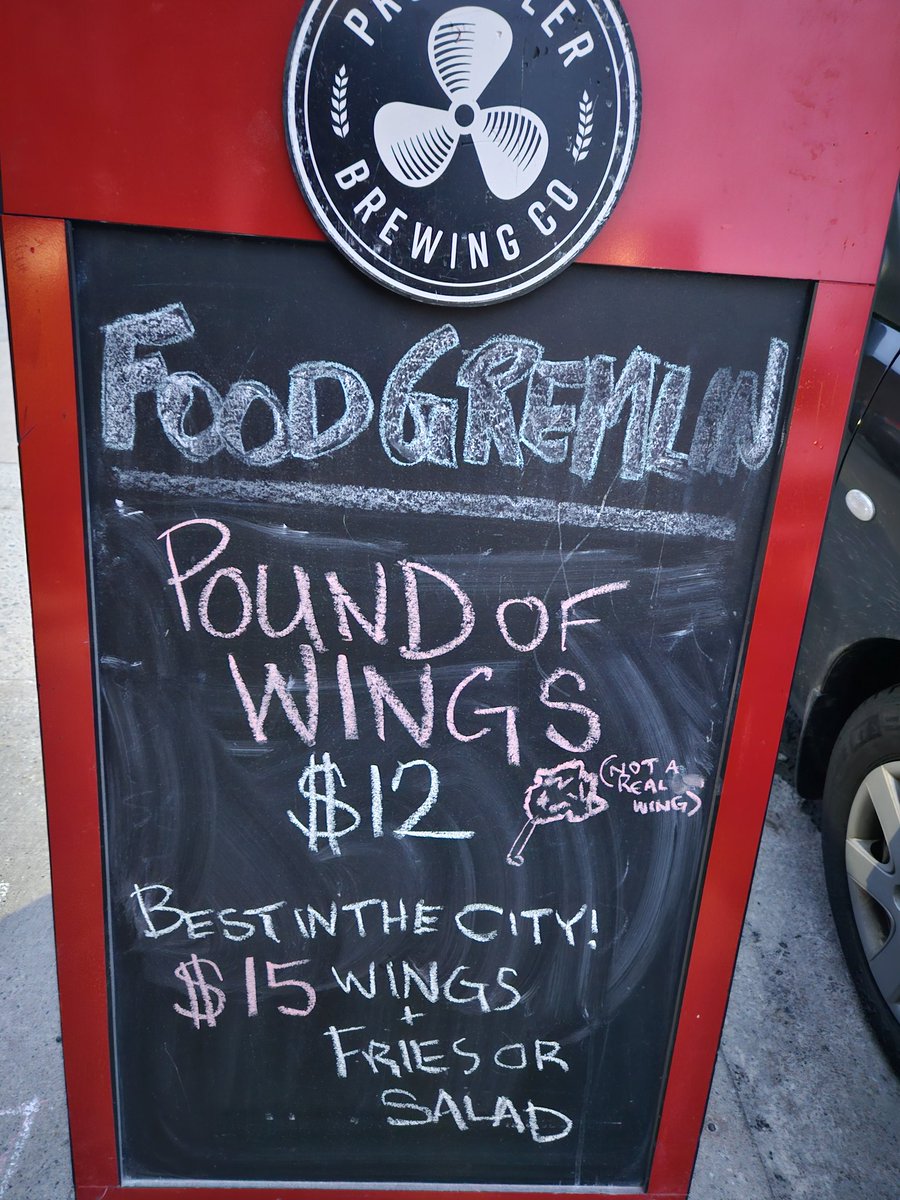 BREWING CO
FOOD GREMLIN
POUND OF
WINGS
$12
(NOT A
REAL
WING)
BEST IN THE CITY!
$15 WINGS
+
FRIES OR
SALAD